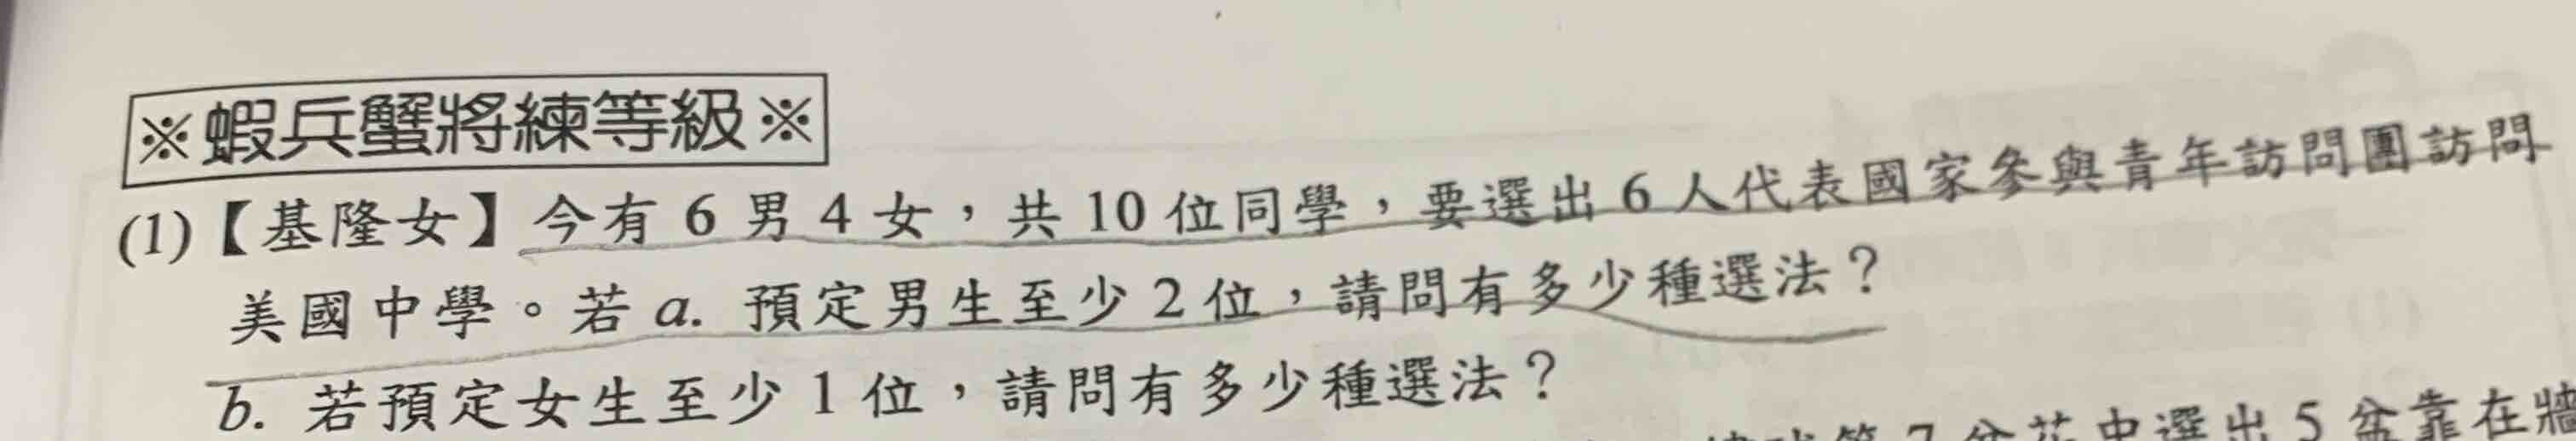 ※蝦兵蟹將練等級※
(1)【基隆女】今有 6 男 4 女，共 10 位同學，要選出 6 人代表國家參與青年訪問團訪問
美國中學。若 a. 預定男生至少 2 位，請問有多少種選法？
b. 若預定女生至少 1 位，請問有多少種選法？
7 盆花中選出 5 盆靠在牆